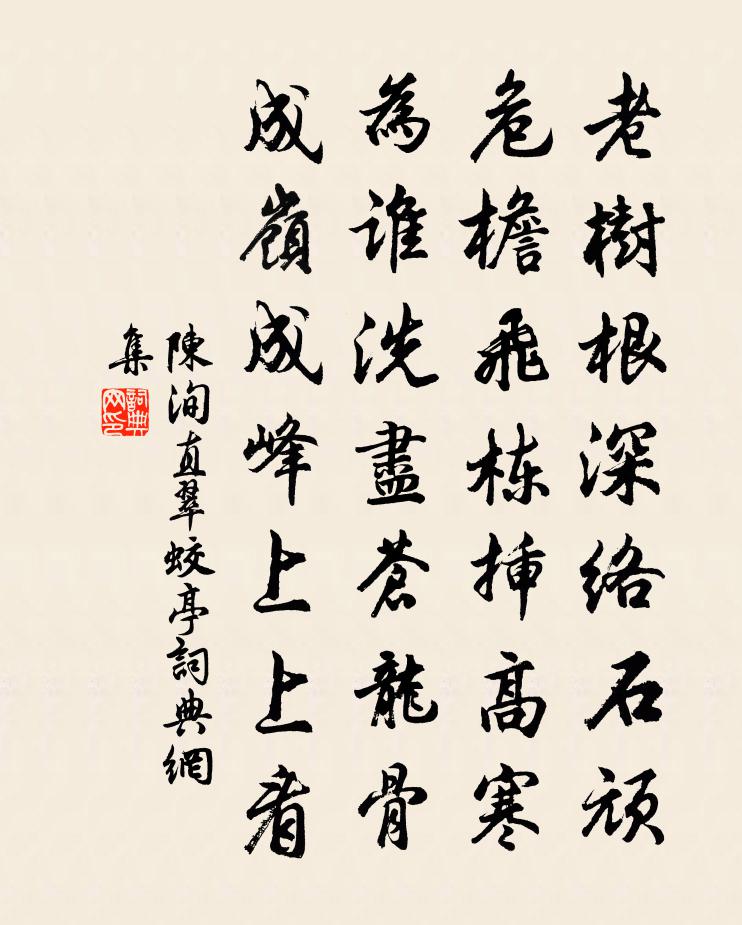 老樹根深絡石頑
危檐飛棟揷高寒
為誰洗盡蒼龍骨
成嶺成峰上上看
陳洵直翠蛟亭詞典網
集
詞典網印